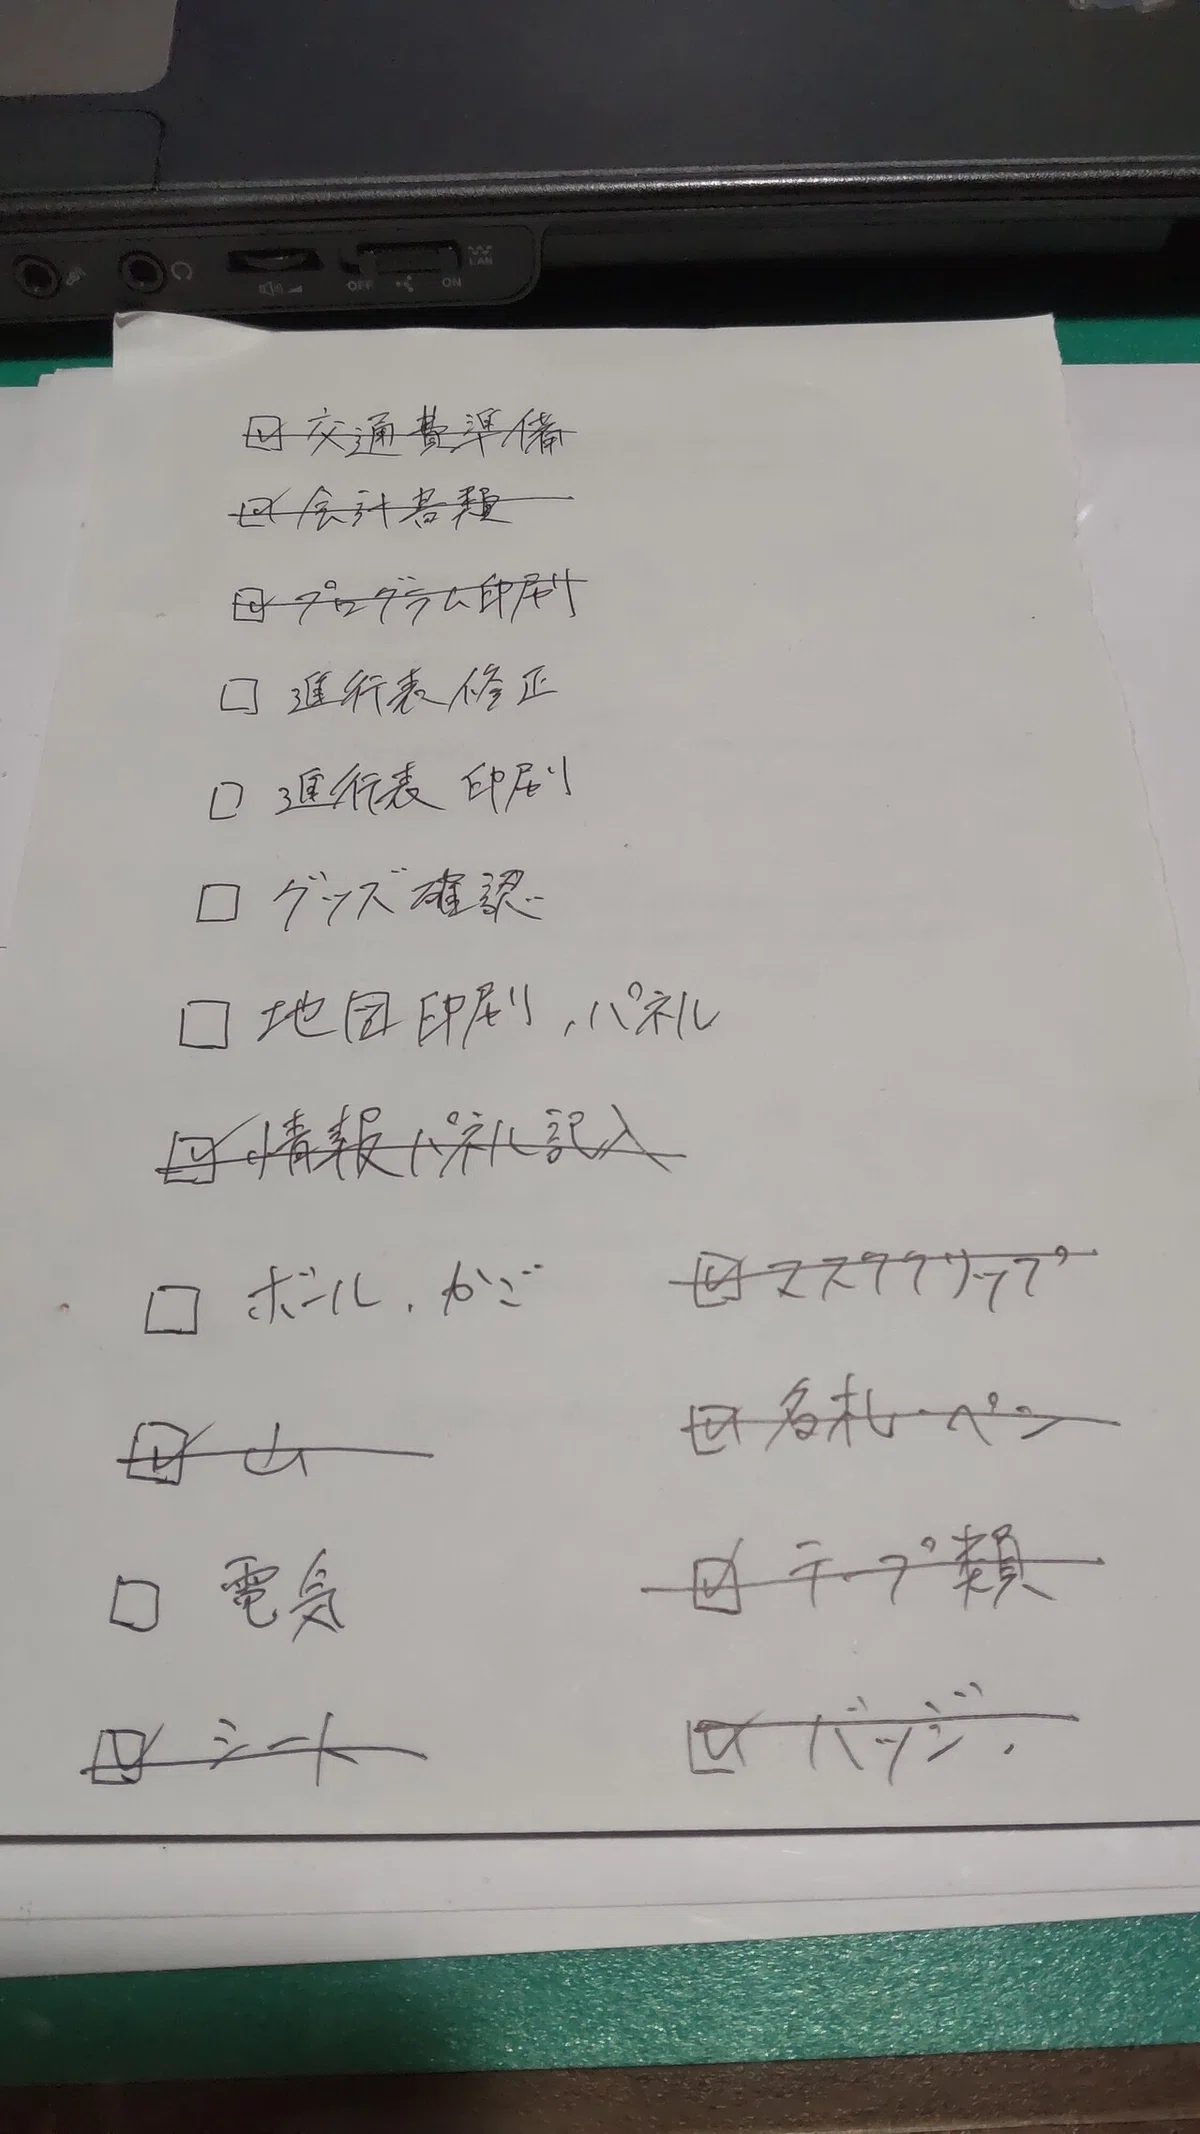 OFF ON LAN
☑ 交通費準備
☑ 会計書類
☑ プログラム印刷
☐ 進行表修正
☐ 進行表 印刷
☐ グッズ確認
☐ 地図印刷、パネル
☑ 情報パネル記入
☐ ボール、かご
☑ 山
☐ 電気
☑ シート
☑ マスククリップ
☑ 名札・ペン
☑ テープ類
☑ バッジ、